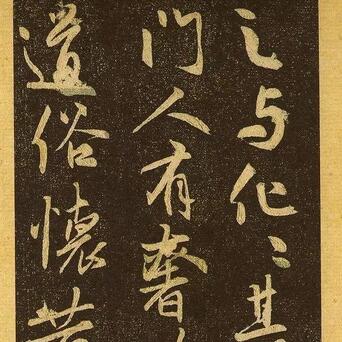 之与化〻
門人有奢
道俗懷